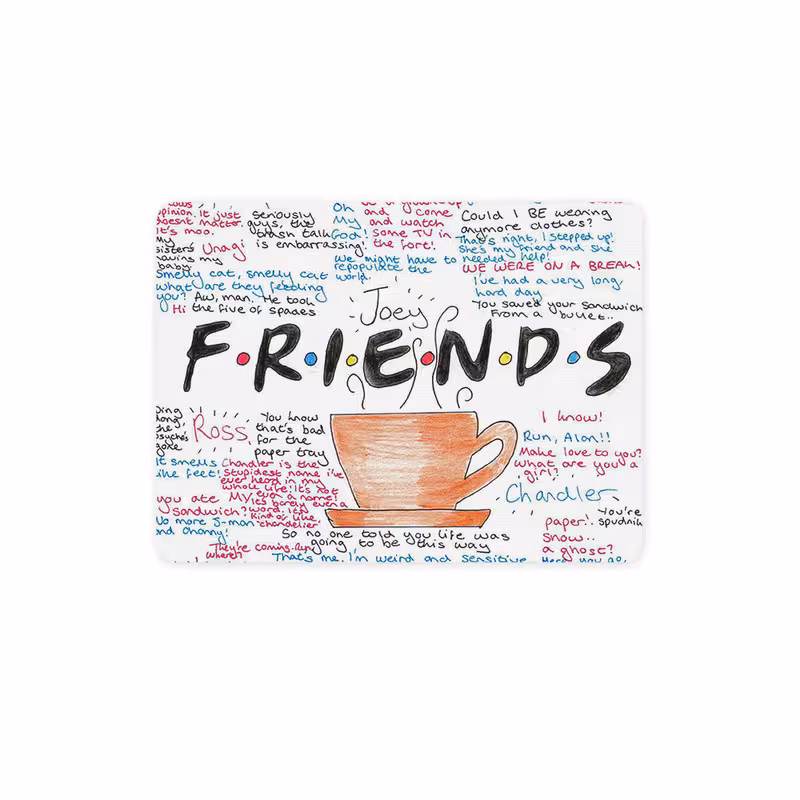 opinion. It just
doesn't matter.
It's moo.
My
sisters
having my
baby
Unagi
seriously
guys, the
trash talk
is embarrassing!
Oh
My
God!
and come
and watch
some TV in
the fort!
Could I BE wearing
anymore clothes?
That's right, I stepped up!
She's my friend and she
needed help!
WE WERE ON A BREAK!
We might have to
repopulate the
world.
I've had a very long
hard day
You saved your sandwich
From a bullet..
Smelly cat, smelly cat
what are they feeding
you?
Aw, man. He took
the five of spades
Hi
Joey
F.R.I.E.N.D.S
Ross
You know
that's bad
for the
paper tray
It smells
like feet!
Chandler is the
stupidest name i've
ever heard in my
whole life! It's not
even a name!
It's barely even a
word. it's
kind of like
chandelier
you ate MY
sandwich?
No more J-man
and Channy!
I know!
Run, Alan!!
Make love to you?
What are you a
girl?
Chandler
You're
spudnik
paper!
Snow..
a ghost?
So no one told you life was
going to be this way
They're coming. Run
where?
That's me, I'm weird and sensitive
Here you go,